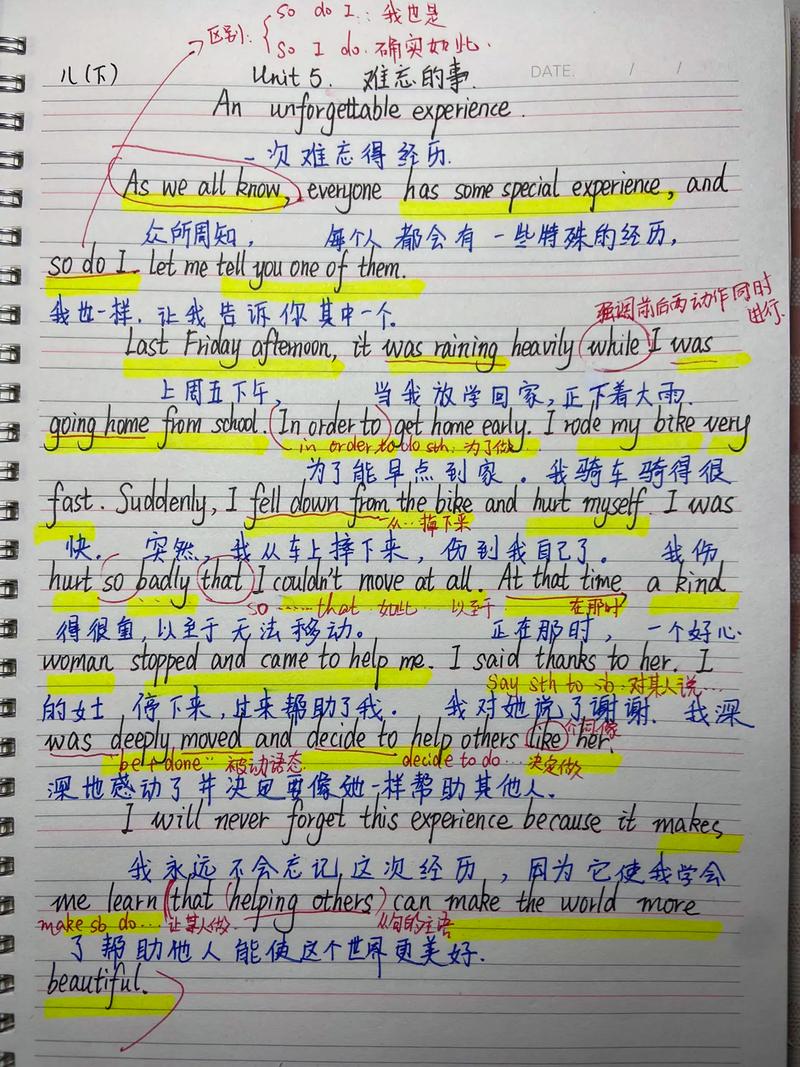 so do I : 我也是
区别:
so I do. 确实如此.
八(下)
Unit 5. 难忘的事.
DATE. / /
An unforgettable experience.
一次难忘得经历.
As we all know, everyone has some special experience, and
众所周知, 每个人都会有一些特殊的经历,
so do I. let me tell you one of them.
我也一样. 让我告诉你其中一个。
强调前后两动作同时
进行.
Last Friday afternoon, it was raining heavily while I was
上周五下午, 当我放学回家,正下着大雨.
going home from school. In order to get home early. I rode my bike very
in order to do sth. 为了做
为了能早点到家。我骑车骑得很
fast. Suddenly, I fell down from the bike and hurt myself. I was
从…掉下来
快。突然,我从车上摔下来,伤到我自己了。 我伤
hurt so badly that I couldn't move at all. At that time, a kind
so ……that 如此…以至于 在那时
得很重,以至于无法移动。 正在那时, 一个好心
woman stopped and came to help me. I said thanks to her. I
say sth to sb. 对某人说…
的女士 停下来,过来帮助了我。 我对她说了谢谢. 我深
was deeply moved and decide to help others like her.
介词像
"be + done" 被动语态. decide to do… 决定做
深地感动了并决定要像她一样帮助其他人.
I will never forget this experience because it makes
我永远不会忘记这次经历,因为它使我学会
me learn (that (helping others) can make the world more
make sb do… 让某人做. 从句的主语
了帮助他人能使这个世界更美好.
beautiful.